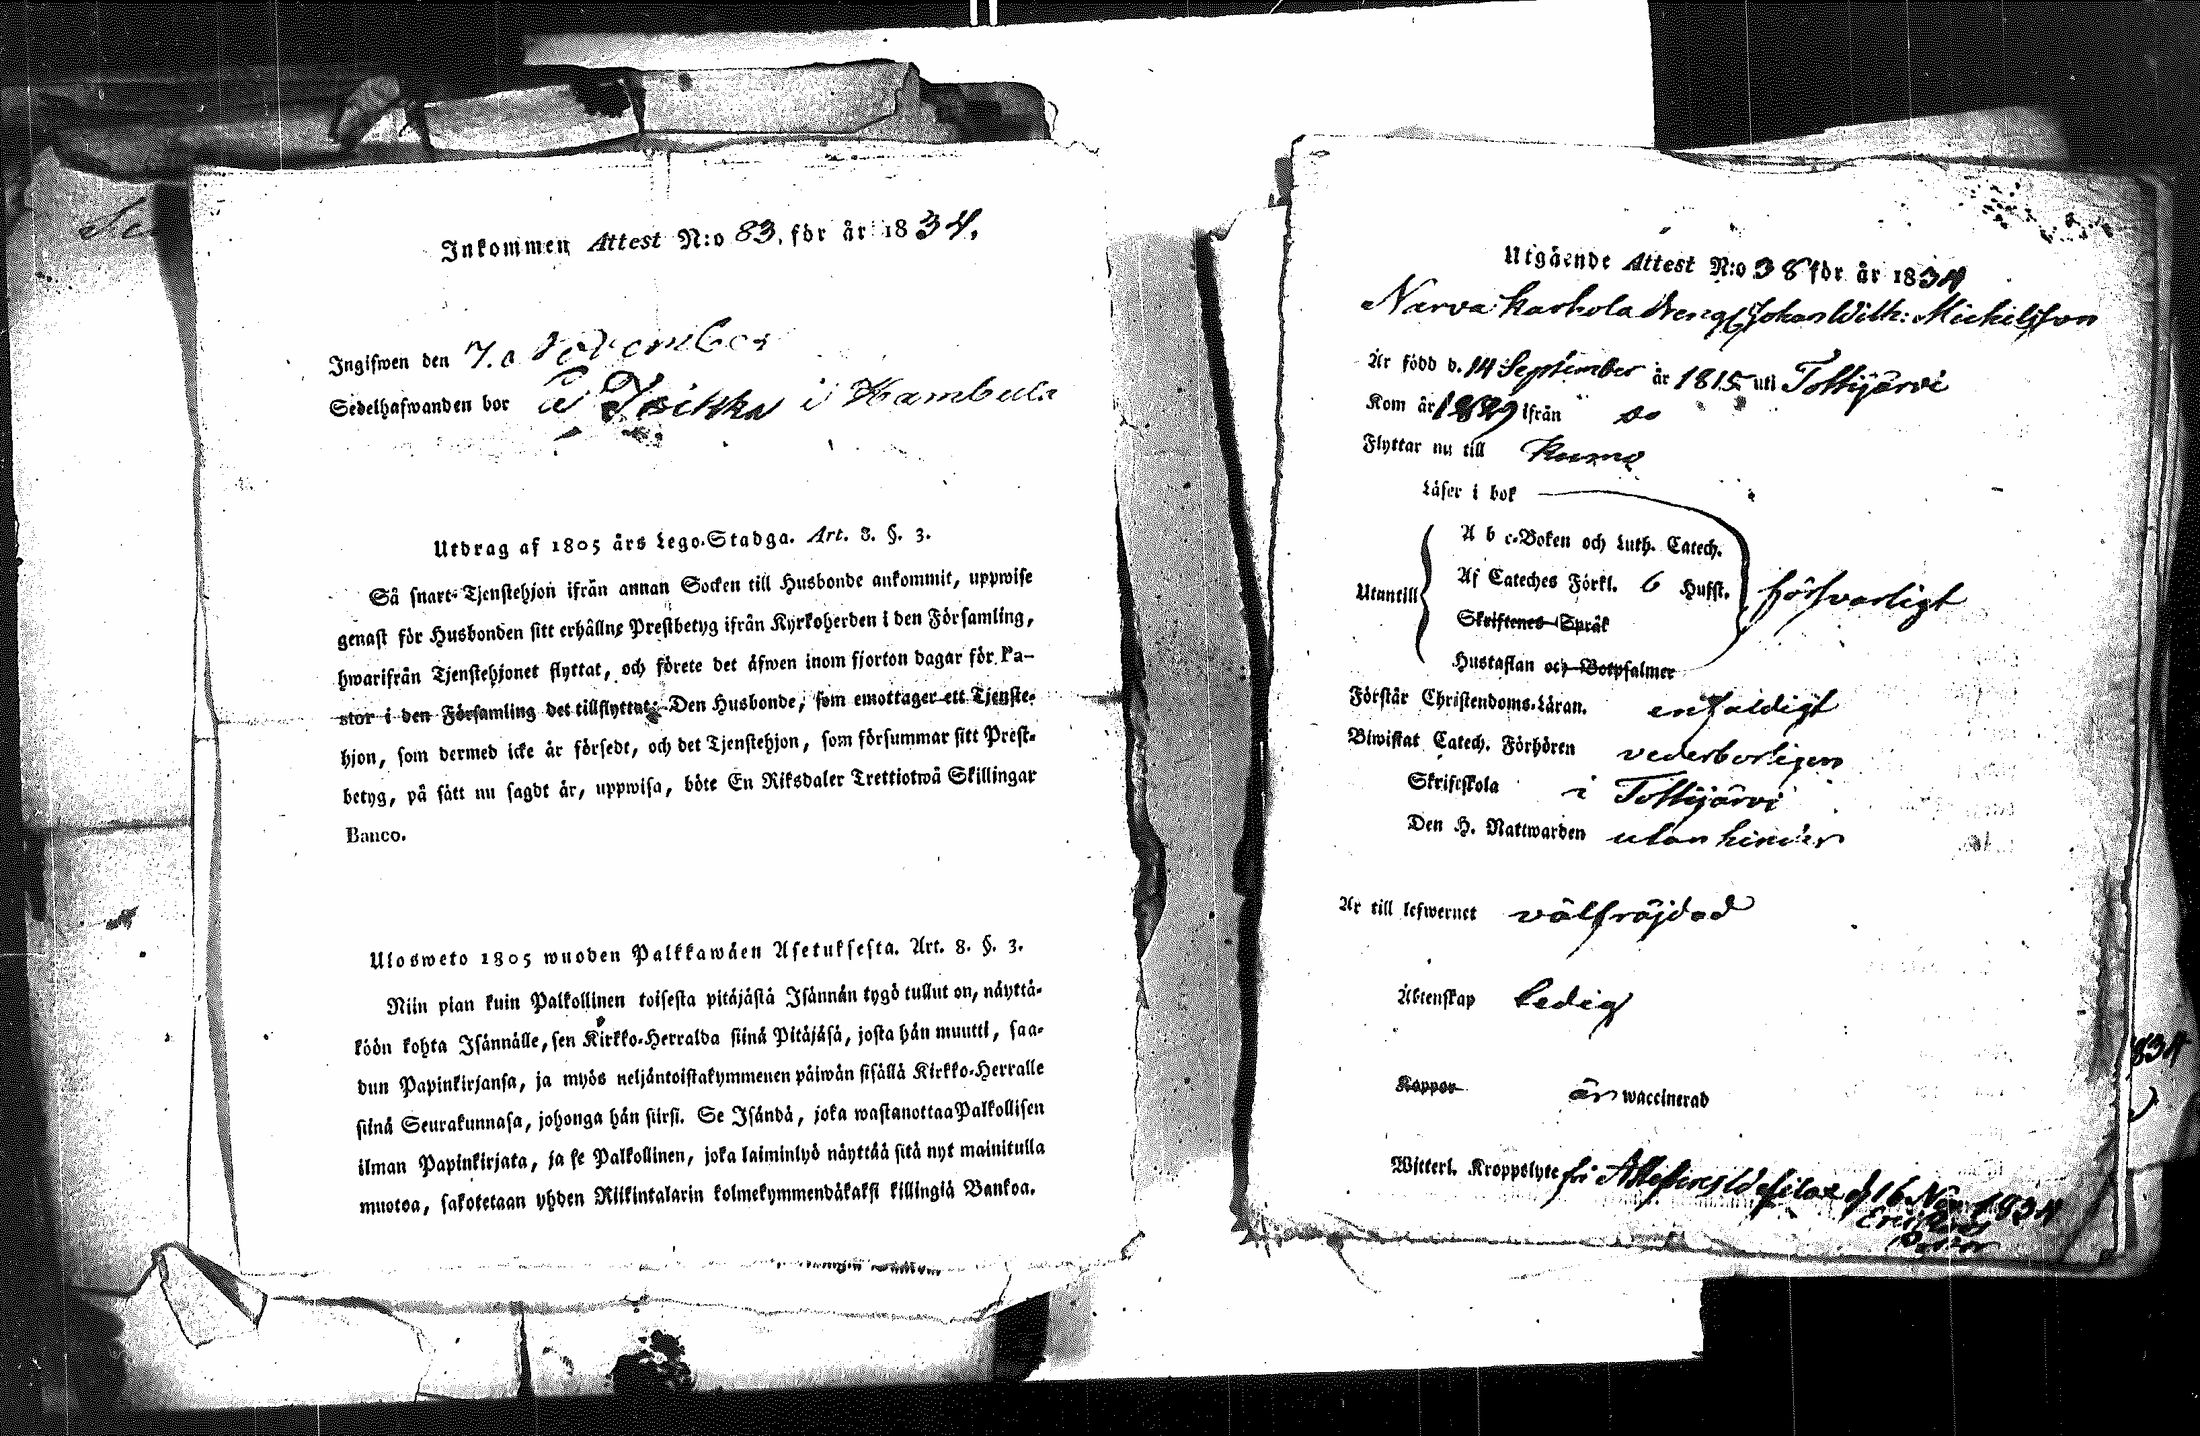 Inkommen Attest N:o 83. för år 1834.
Ingifwen den 7. November
Sedelhafwanden bor å Isikka i Hambula
Utdrag af 1805 års Lego-Stadga. Art. 8. §. 3.
Så snart Tjenstehjon ifrån annan Socken till Husbonde ankommit, uppwise
genast för Husbonden sitt erhållne Prestbetyg ifrån Kyrkoherden i den Församling,
hwarifrån Tjenstehjonet flyttat, och förete det äfwen inom fjorton dagar för Pa-
stor i den Församling det tillflyttat. Den Husbonde, som emottager ett Tjenste-
hjon, som dermed icke är försedt, och det Tjenstehjon, som försummar sitt Prest-
betyg, på sätt nu sagdt är, uppwisa, böte En Riksdaler Trettiotwå Skillingar
Banco.
Ulosweto 1805 wuoden Palkkawäen Asetuksesta. Art. 8. §. 3.
Niin pian kuin Palkollinen toisesta pitäjästä Isännän tygö tullut on, näyttä-
köön kohta Isännälle, sen Kirkko-Herralda siinä Pitäjäsä, josta hän muutti, saa-
dun Papinkirjansa, ja myös neljäntoistakymmenen päiwän sisällä Kirkko-Herralle
siinä Seurakunnasa, johonga hän siirsi. Se Isändä, joka wastanottaa Palkollisen
ilman Papinkirjata, ja se Palkollinen, joka laiminlyö näyttää sitä nyt mainitulla
muotoa, sakotetaan yhden Riikintalarin kolmekymmendäkaksi killingiä Bankoa.
Utgående Attest N:o 38 för år 1834
Narva Karhola Dreng Johan Wilh: Michelsson
Är född d. 14 September år 1815 uti Tottijärvi
Kom år 1829 ifrån do
Flyttar nu till Kumo
Läser i bok
A b c-Boken och Luth. Catech.
Utantill Af Cateches Förkl. 6 Hufst. försvarligt
Skriftenes Språk
Hustaflan och Botpsalmer
Förstår Christendoms-Läran. enfaldigt
Biwistat Catech. Förhören vederbörligen
Skriftskola i Tottijärvi
Den H. Nattwarden utan hinder
Är till lefwernet välfräjdad
Äktenskap ledig
Koppor är waccinerad
Witterl. Kroppslyte för Attesteras Wesilax d 16 Nov 1834
Pastor
834